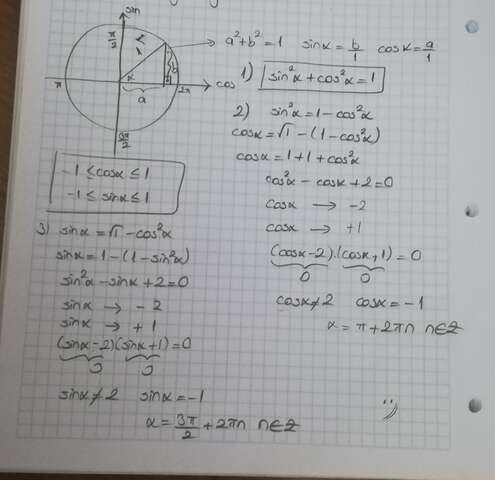 sin
π/2
1
b
α
a
π
2π
cos
3π/2
a²+b²=1 sinα=b/1 cosα=a/1
1) sin²α+cos²α=1
2) sin²α=1-cos²α
cosα=√1-(1-cos²α)
cosα=1+1+cos²α
cos²α-cosα+2=0
cosα → -2
cosα → +1
(cosα-2).(cosα+1)=0
0 0
cosα≠2 cosα=-1
α=π+2πn n∈Z
-1≤cosα≤1
-1≤sinα≤1
3) sinα=√1-cos²α
sinα=1-(1-sin²α)
sin²α-sinα+2=0
sinα → -2
sinα → +1
(sinα-2)(sinα+1)=0
0 0
sinα≠2 sinα=-1
α=3π/2+2πn n∈Z
:)